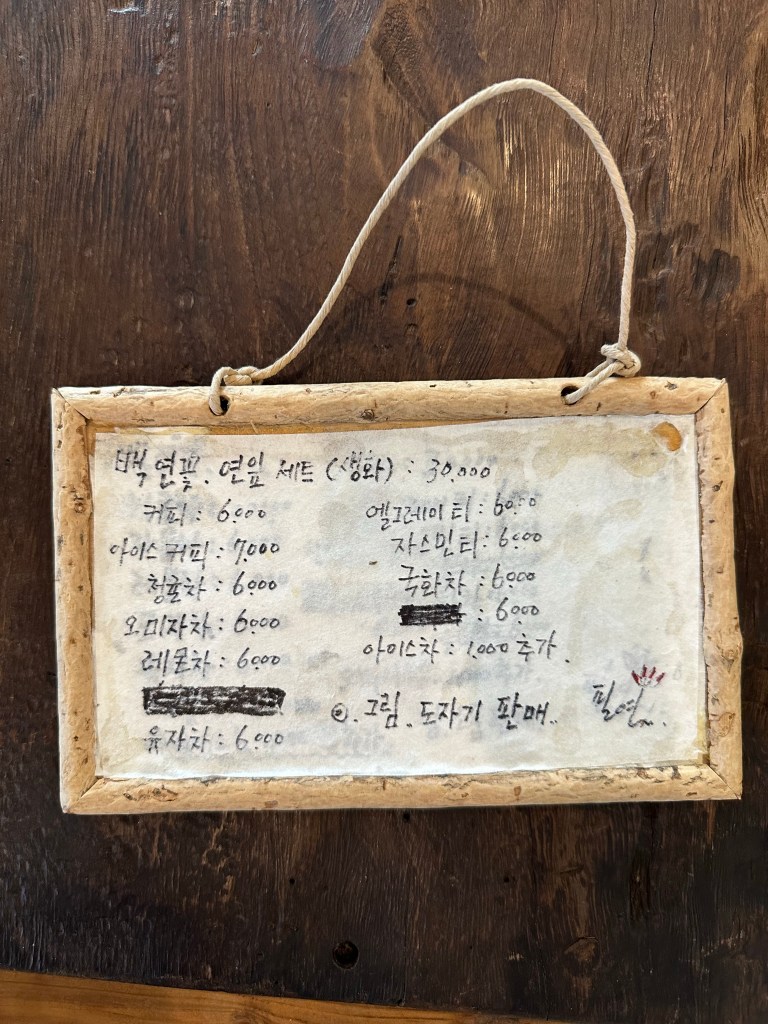 백연꽃. 연잎 세트 (생화) : 30.000
커피 : 6.000
아이스커피 : 7.000
청귤차 : 6.000
오미자차 : 6.000
레몬차 : 6.000
유자차 : 6.000
얼그레이티 : 6.000
자스민티 : 6.000
국화차 : 6.000
: 6.000
아이스차 : 1.000 추가.
◎. 그림.. 도자기 판매..
필연